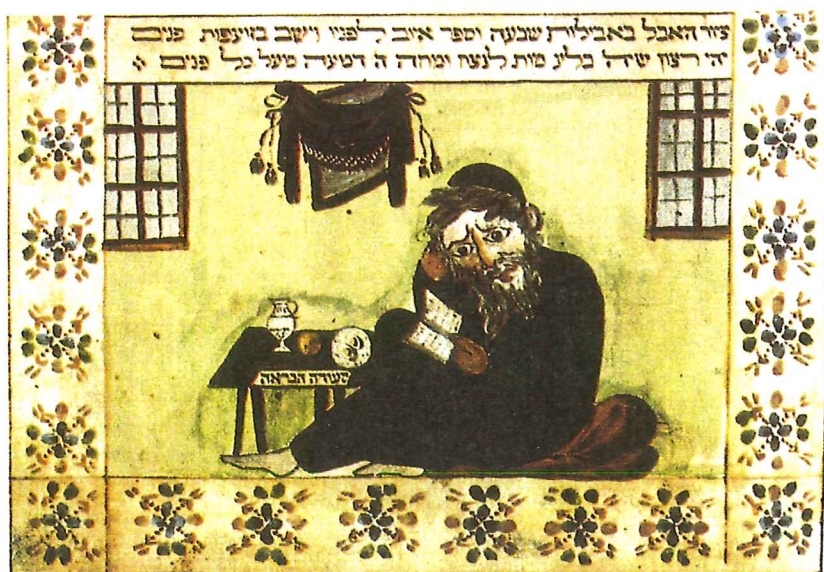 ציור האבל באבילות שבעה וספר איוב לפניו וישב בזועפות פנים
יהי רצון שיהי' בלע מות לנצח ומחה ה דמעה מעל כל פנים
סעודה הבראה